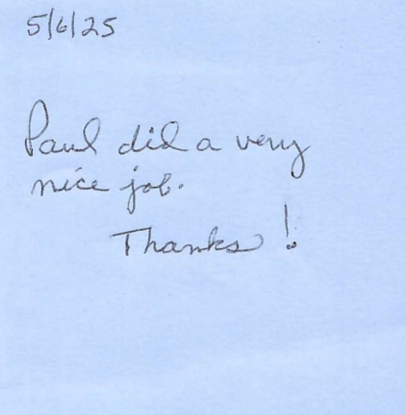 5/6/25
Paul did a very
nice job.
Thanks!